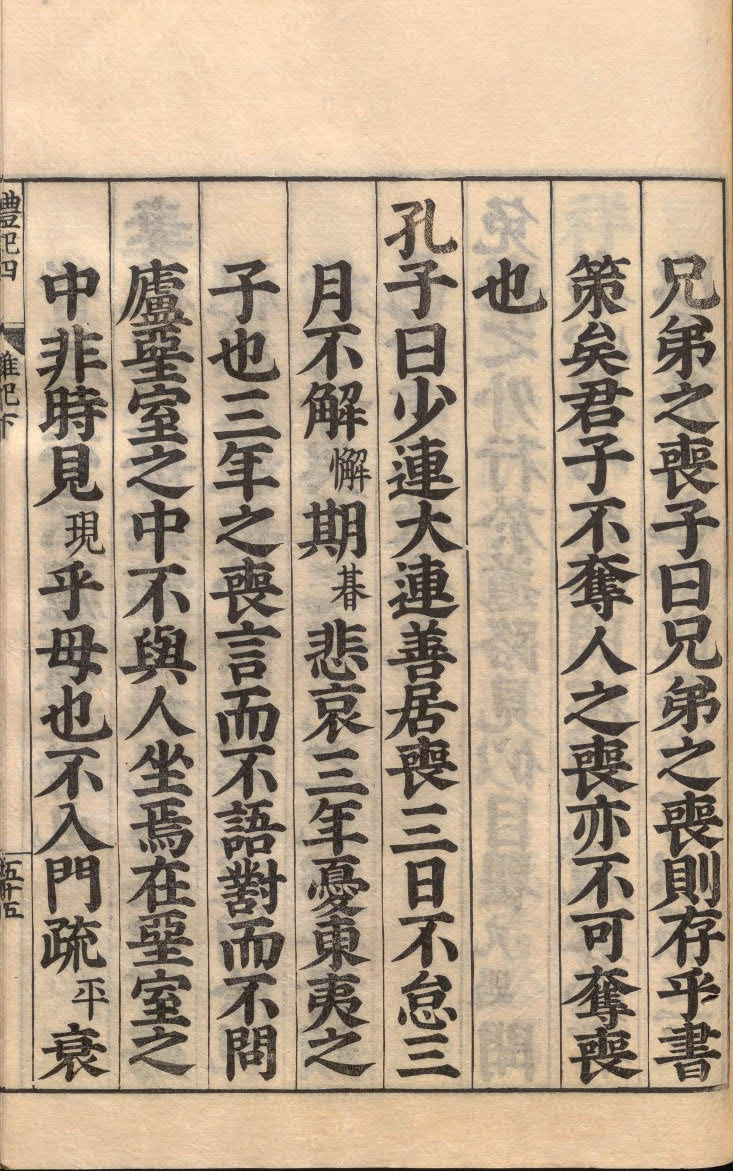 兄弟之喪子曰兄弟之喪則存乎書
策矣君子不奪人之喪亦不可奪喪
也
孔子曰少連大連善居喪三日不怠三
月不解懈期朞悲哀三年憂東夷之
子也三年之喪言而不語對而不問
廬堊室之中不與人坐焉在堊室之
中非時見現乎母也不入門疏平衰
禮記四 雜記下 五十五